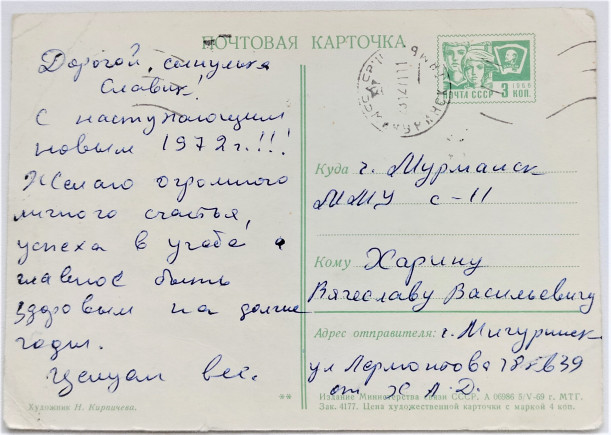 ПОЧТОВАЯ КАРТОЧКА
Дорогой, сынулька
Славик!
С наступающим
новым 1972 г.!!!
Желаю огромного
личного счастья,
успеха в учебе а
главное быть
здоровым на долгие
годы.
Целуем все.
Художник Н. Кирпичева.
ПОЧТА СССР
1966
3 КОП.
Куда г. Мурманск
ММУ с-11
Кому Харину
Вячеславу Васильевичу
Адрес отправителя: г. Мичуринск
ул Лермонтова 78 кв 39
от Х А. Д.
**
Издание Министерства связи СССР. А 00986 5/V-69 г. МТГ.
Зак. 4177. Цена художественной карточки с маркой 4 коп.